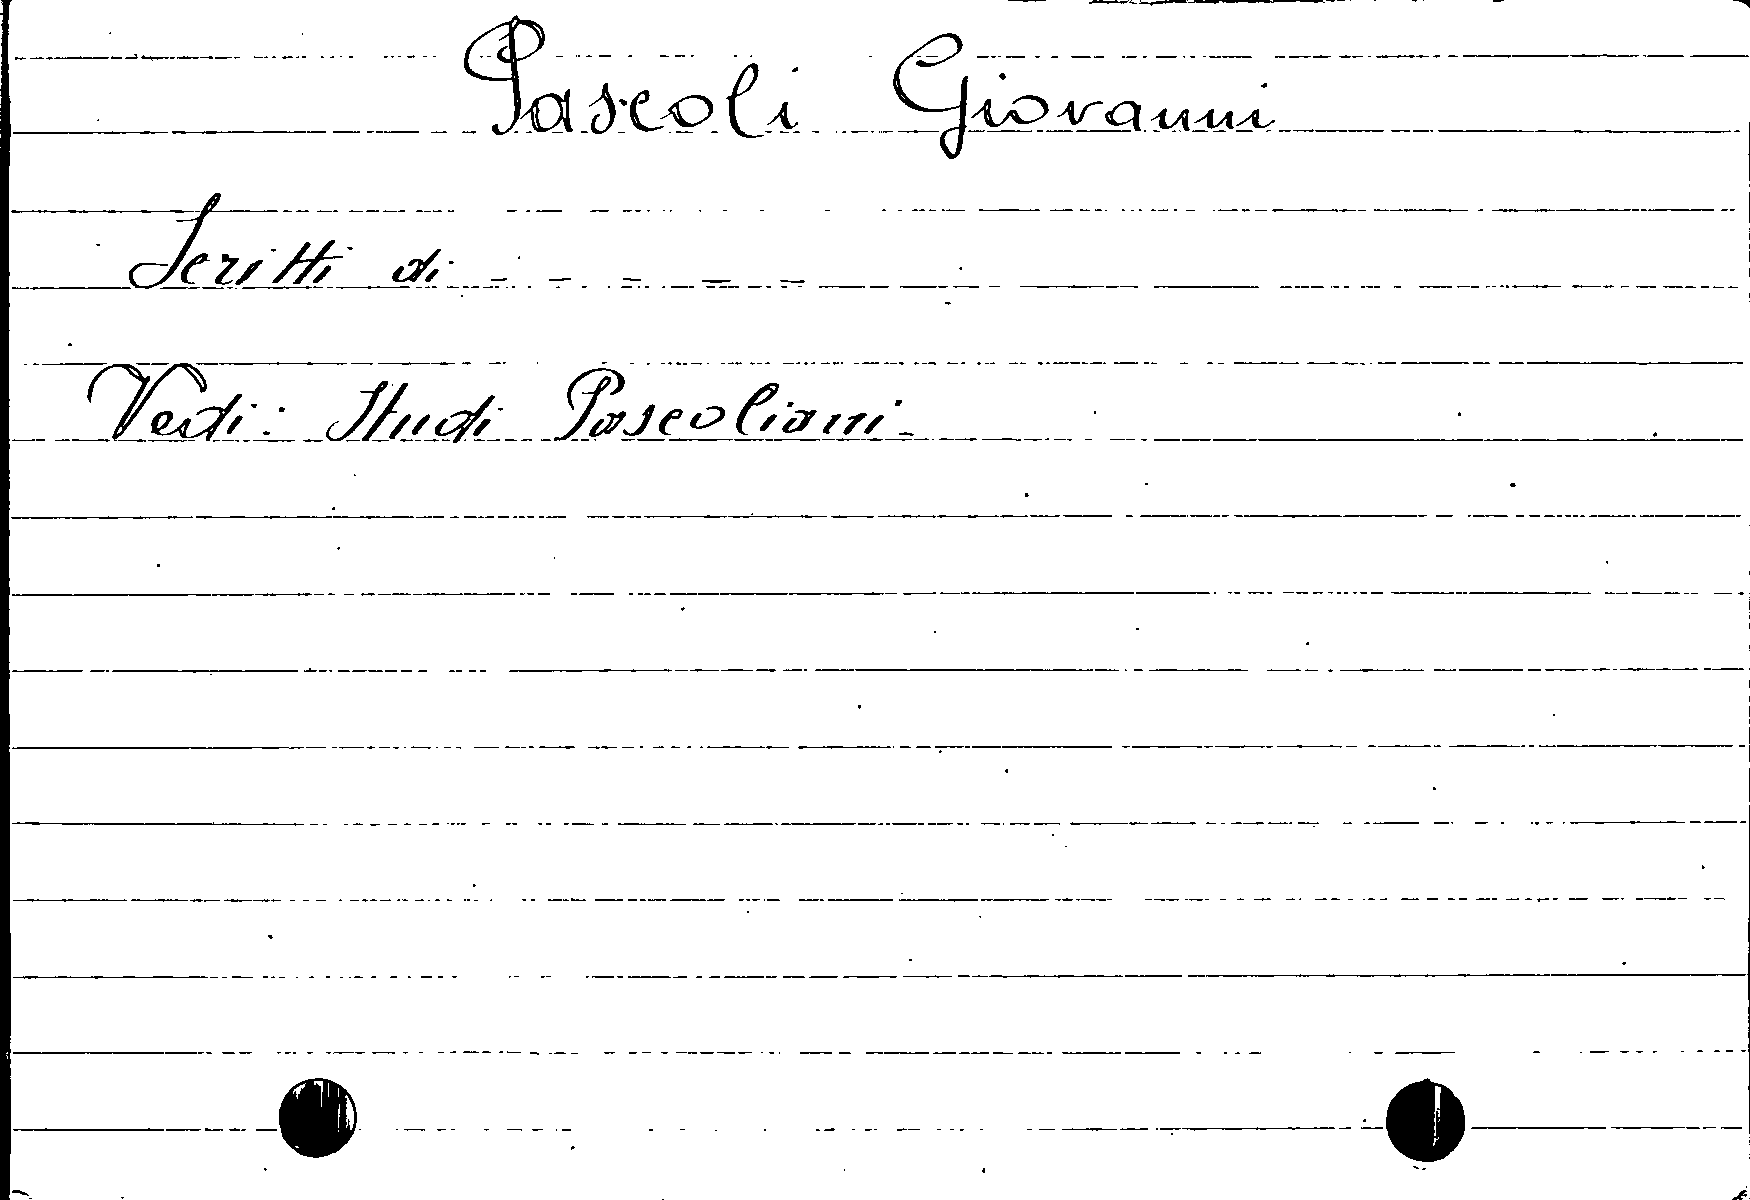 Pascoli Giovanni
Scritti di - - - - -
Vedi: Studi Pascoliani-